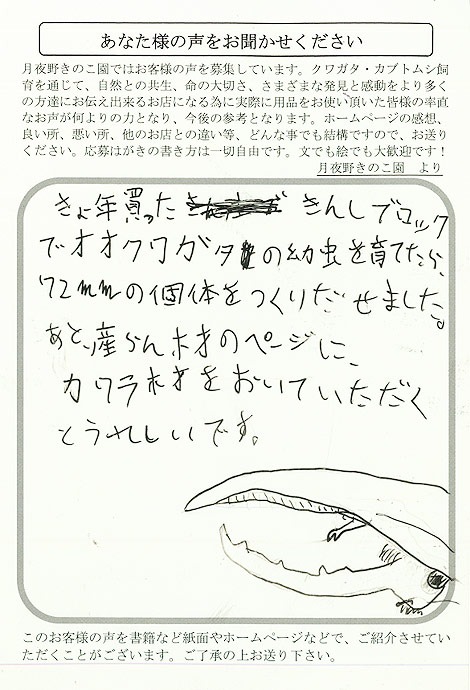 あなた様の声をお聞かせください
月夜野きのこ園ではお客様の声を募集しています。クワガタ・カブトムシ飼
育を通じて、自然との共生、命の大切さ、さまざまな発見と感動をより多く
の方達にお伝え出来るお店になる為に実際に用品をお使い頂いた皆様の率直
なお声が何よりの力となり、今後の参考となります。ホームページの感想、
良い所、悪い所、他のお店との違い等、どんな事でも結構ですので、お送り
ください。応募はがきの書き方は一切自由です。文でも絵でも大歓迎です！
月夜野きのこ園　より
きょ年買った きんしブロック
でオオクワガタの幼虫を育てたら、
72mmの個体をつくりだせました。
あと、産らん材のページに、
カワラ材をおいていただく
とうれしいです。
このお客様の声を書籍など紙面やホームページなどで、ご紹介させてい
ただくことがございます。ご了承の上お送り下さい。